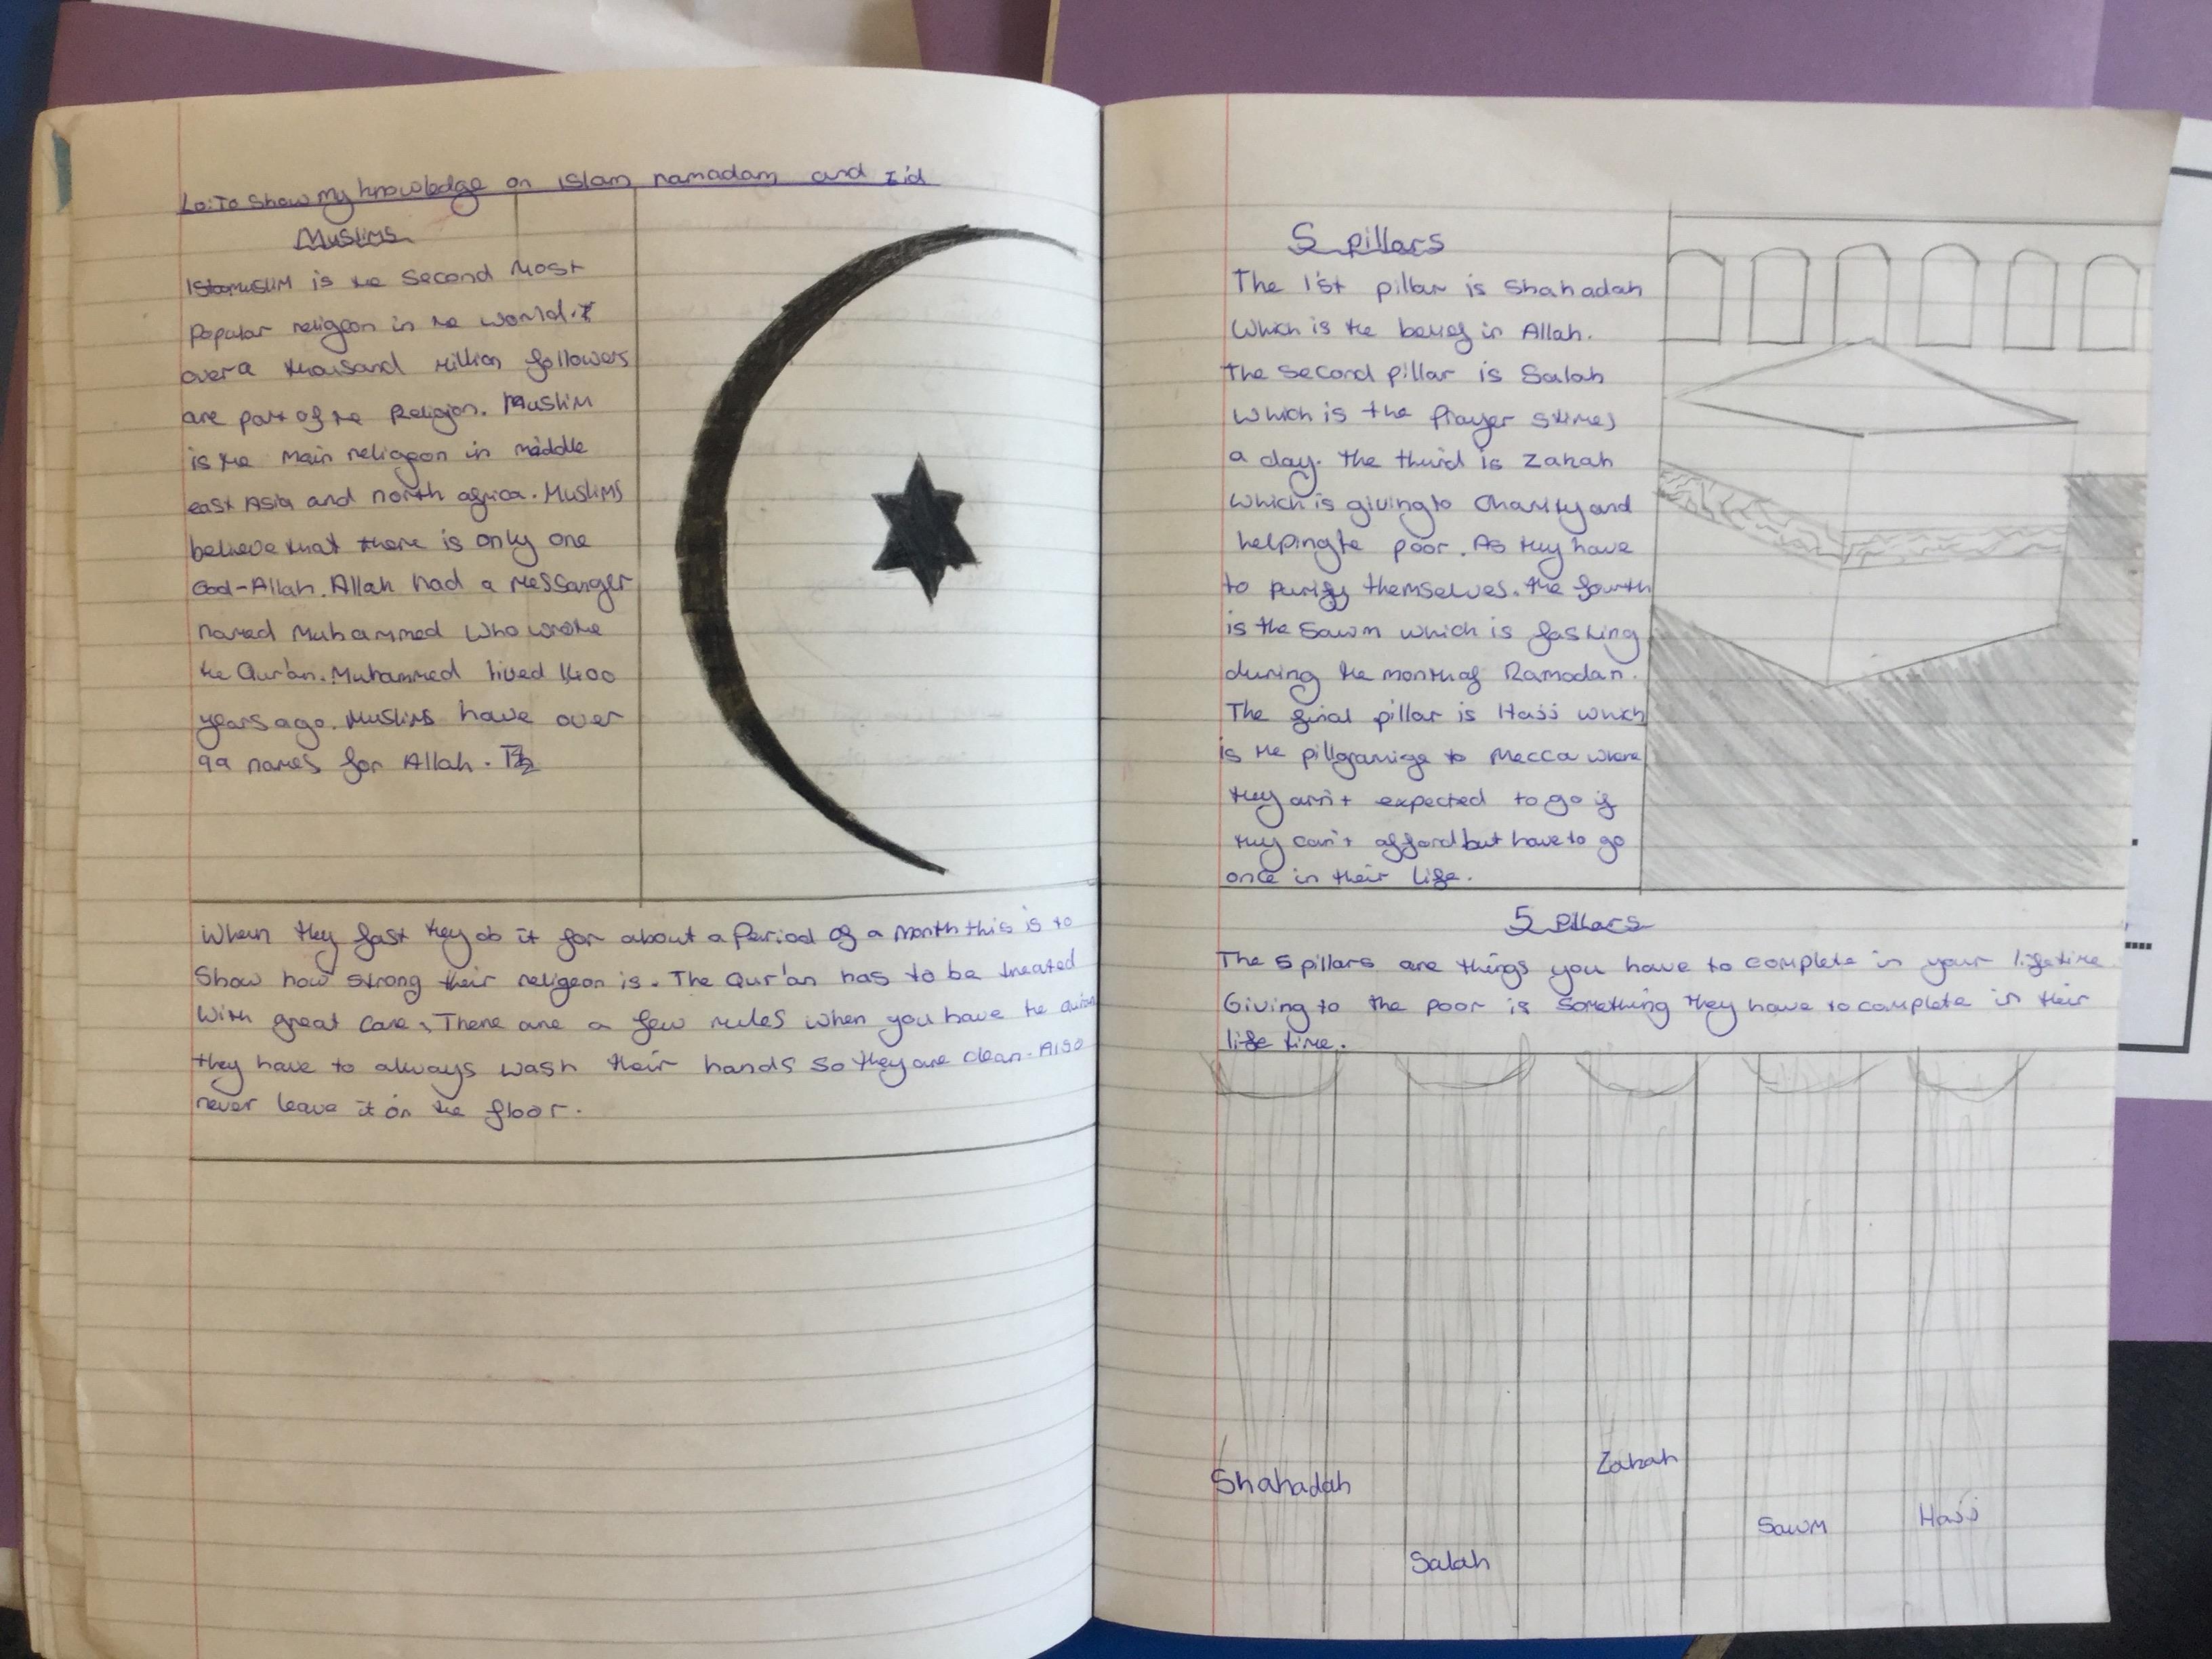 Lo: To Show my knowledge on islam, ramadam and Eid
Muslims
muslim is the second most
Popular religeon in the world.
over a thousand million followers
are part of the Religion. Muslim
is the main religeon in middle
east Asia and north africa. Muslims
believe that there is only one
God-Allah. Allah had a messanger
named Muhammed who wrote
the Qur'an. Muhammed lived 1400
years ago. Muslims have over
99 names for Allah.
When they fast they do it for about a Period of a month this is to
Show how strong their religeon is. The Qur'an has to be treated
With great care. There are a few rules when you have the Quran
they have to always wash their hands so they are clean. Also
never leave it on the floor.
5 pillars
The 1'st pillar is Shahadah
Which is the belief in Allah.
the second pillar is Salah
which is the Prayer 5 times
a day. the thurid is Zakah
which is giving to Charity and
helping te poor. As they have
to purify themselves. the fourth
is the Sawm which is fasting
during the month of Ramadan.
The final pillar is Hajj which
is the pillgramige to Mecca where
they arn't expected to go if
they can't afford but have to go
once in their life.
5 Pillars
The 5 pillars are things you have to complete in your lifetime
Giving to the poor is something they have to complete in their
life time.
Shahadah
Salah
Zakah
Sawm
Hajj